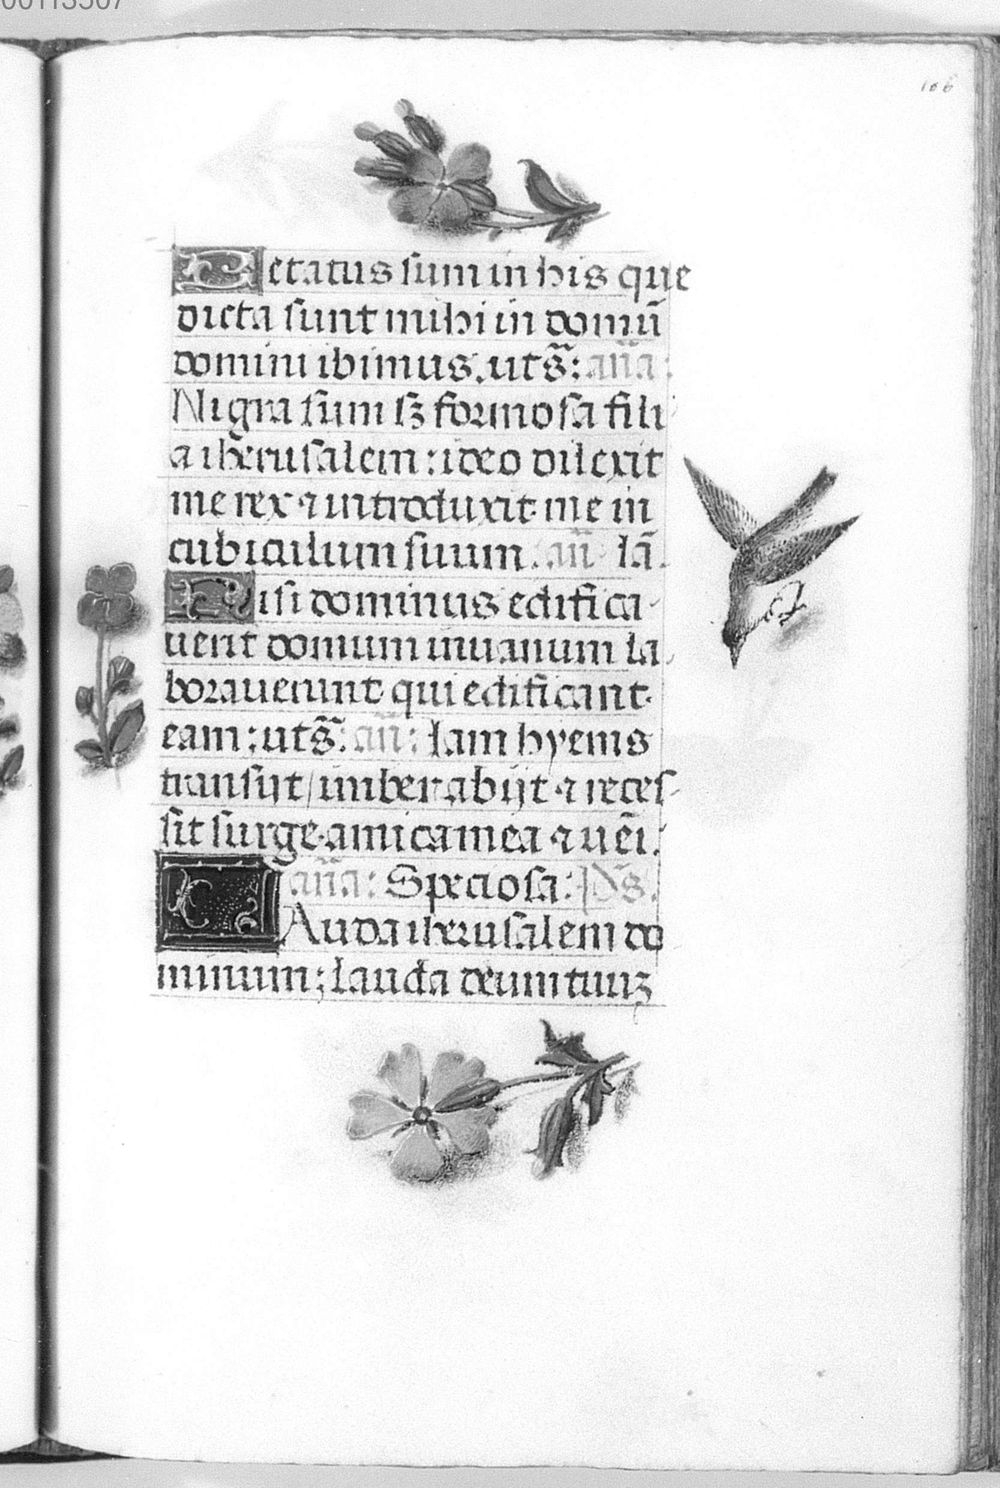 00113507
106
Letatus sum in his que
dicta sunt mihi in domũ
domini ibimus. ut s̃: añã:
Nigra sum sꝫ formosa fili
a iherusalem: ideo dilexit
me rex ⁊ introduxit me in
cubiculum suum. añ̃ lã.
Nisi dominus edifica
uerit domum inuanum la
borauerunt qui edificant
eam: ut s̃. añ̃: Iam hyems
transijt / imber abijt ⁊ reces
sit surge amica mea ⁊ uẽi.
añã: Speciosa: p̃s.
Lauda iherusalem do
minum: lauda deum tuuꝫ